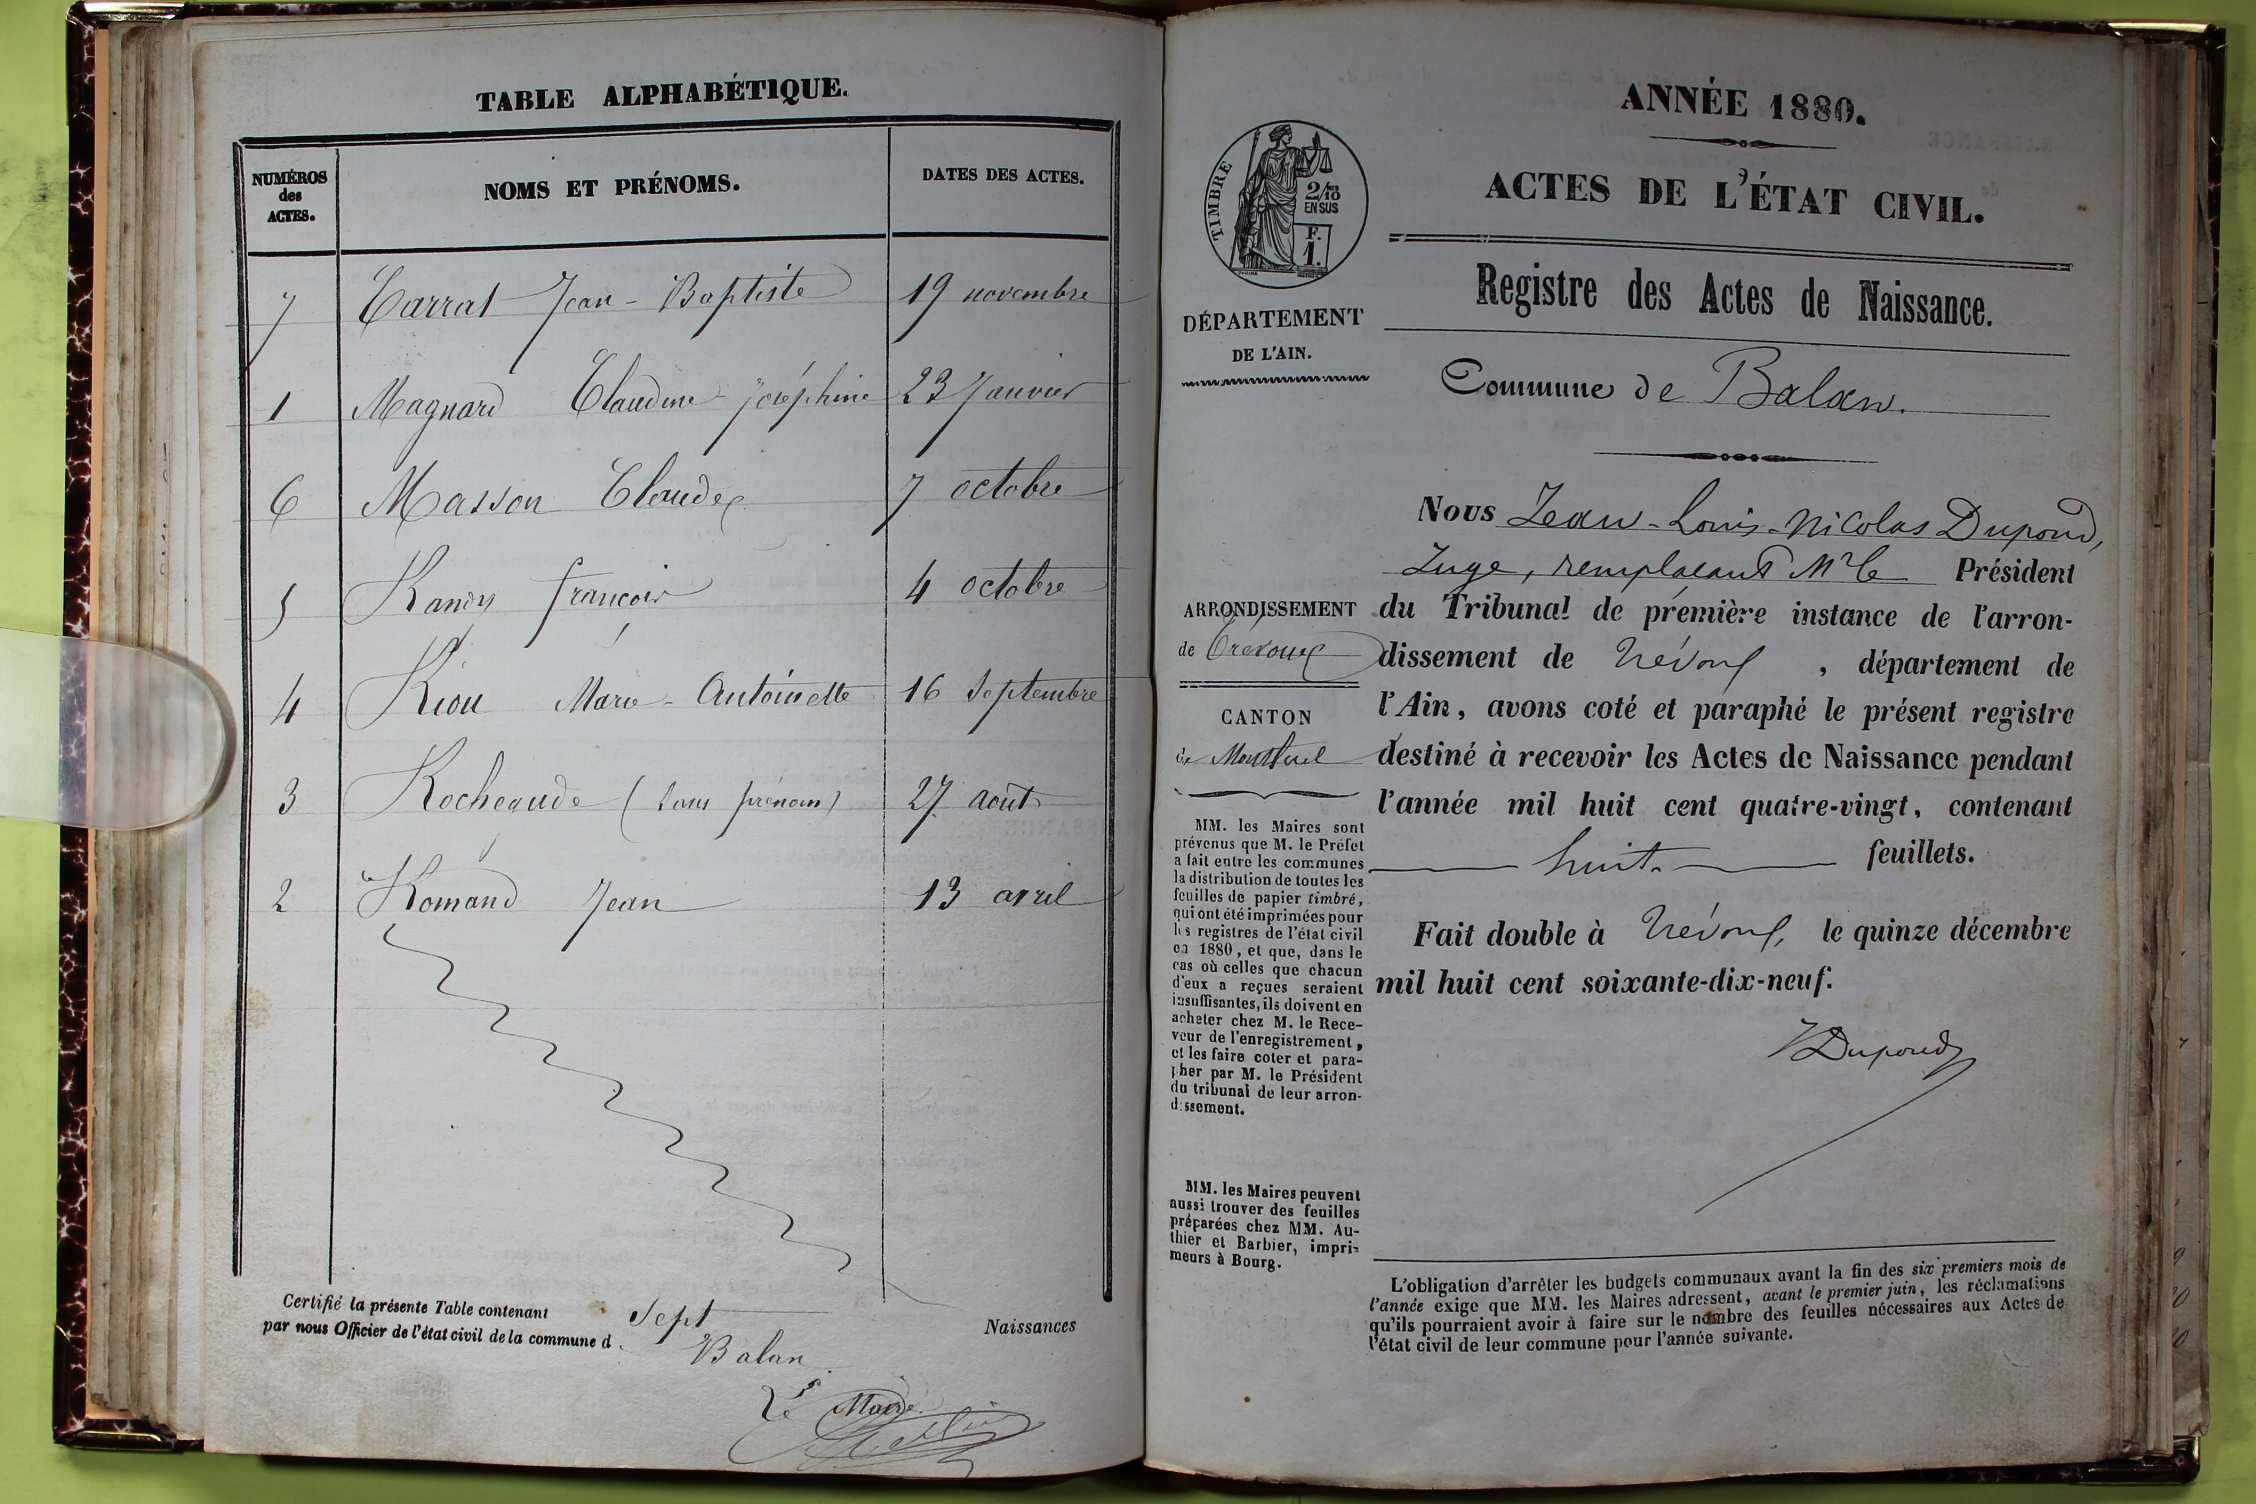 TABLE ALPHABÉTIQUE.
NUMÉROS
des
ACTES.
NOMS ET PRÉNOMS.
DATES DES ACTES.
7 Carrat Jean-Baptiste 19 novembre
1 Magnard Claudine-Joséphine 23 Janvier
6 Masson Claude 7 octobre
5 Randy françois 4 octobre
4 Riou Marie-Antoinette 16 Septembre
3 Rocheaude (Sans prénom) 27 août
2 Romand Jean 13 avril
Certifié la présente Table contenant Sept Naissances
par nous Officier de l'état civil de la commune d Balan
Le Maire
ANNÉE 1880.
ACTES DE L'ÉTAT CIVIL.
TIMBRE
2/10
EN SUS
F.
1.
DÉPARTEMENT
DE L'AIN.
Registre des Actes de Naissance.
Commune de Balan.
Nous Jean-Louis-Nicolas Dupond,
Juge, remplaçant Mr le Président
du Tribunal de première instance de l'arron-
dissement de Trévoux, département de
l'Ain, avons coté et paraphé le présent registre
destiné à recevoir les Actes de Naissance pendant
l'année mil huit cent quatre-vingt, contenant
huit feuillets.
Fait double à Trévoux, le quinze décembre
mil huit cent soixante-dix-neuf.
Dupond
ARRONDISSEMENT
de Trévoux
CANTON
de Montluel
MM. les Maires sont
prévenus que M. le Préfet
a fait entre les communes
la distribution de toutes les
feuilles de papier timbré,
qui ont été imprimées pour
les registres de l'état civil
en 1880, et que, dans le
cas où celles que chacun
d'eux a reçues seraient
insuffisantes, ils doivent en
acheter chez M. le Rece-
veur de l'enregistrement,
et les faire coter et para-
pher par M. le Président
du tribunal de leur arron-
dissement.
MM. les Maires peuvent
aussi trouver des feuilles
préparées chez MM. Au-
thier et Barbier, impri-
meurs à Bourg.
L'obligation d'arrêter les budgets communaux avant la fin des six premiers mois de
l'année exige que MM. les Maires adressent, avant le premier juin, les réclamations
qu'ils pourraient avoir à faire sur le nombre des feuilles nécessaires aux Actes de
l'état civil de leur commune pour l'année suivante.